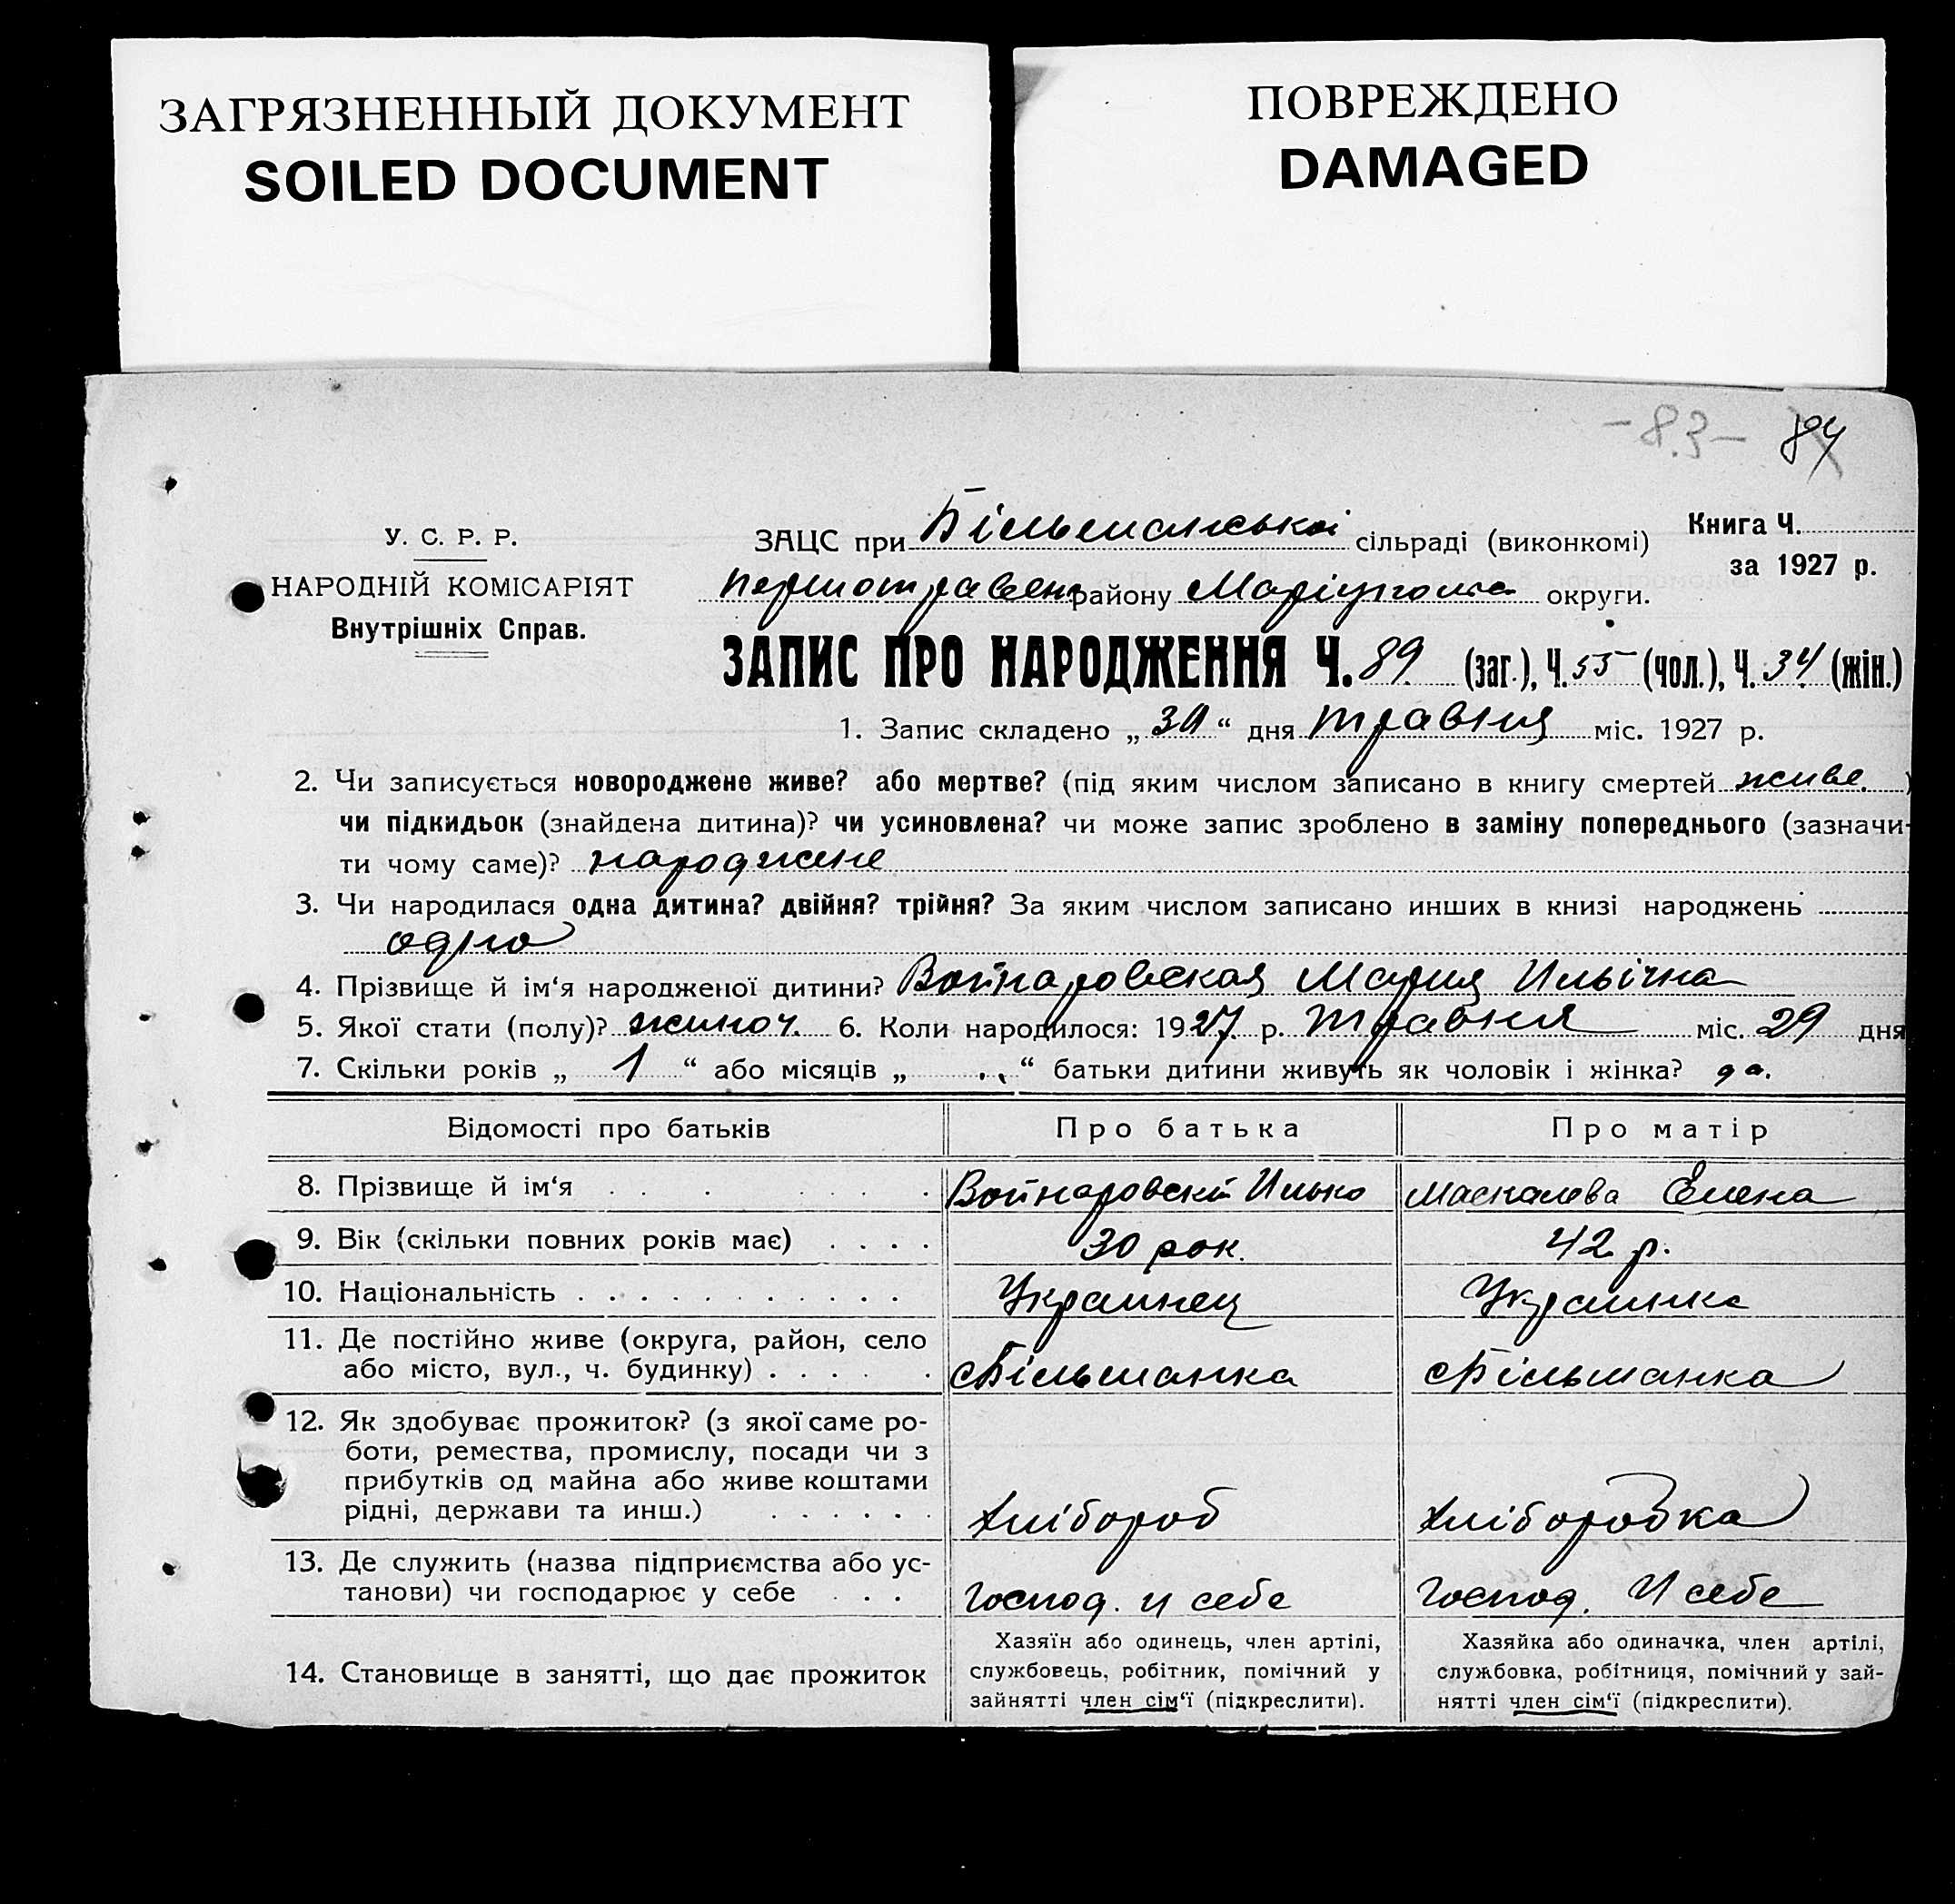 ЗАГРЯЗНЕННЫЙ ДОКУМЕНТ
SOILED DOCUMENT
ПОВРЕЖДЕНО
DAMAGED
-83- 84
У. С. Р. Р.
НАРОДНІЙ КОМІСАРІЯТ
Внутрішніх Справ.
ЗАЦС при Більманській сільраді (виконкомі)
Книга Ч.
за 1927 р.
Першотравен району Маріупольс округи.
ЗАПИС ПРО НАРОДЖЕННЯ Ч. 89. (заг.), Ч. 55 (чол.), Ч. 34 (жін.)
1. Запис складено „ 30 “ дня травня міс. 1927 р.
2. Чи записується новороджене живе? або мертве? (під яким числом записано в книгу смертей живе. )
чи підкидьок (знайдена дитина)? чи усиновлена? чи може запис зроблено в заміну попереднього (зазначи-
ти чому саме)? народжене
3. Чи народилася одна дитина? двійня? трійня? За яким числом записано инших в книзі народжень
одно
4. Прізвище й ім‘я народженої дитини? Войнаровская Мария Ильічна
5. Якої стати (полу)? жиноч. 6. Коли народилося: 1927 р. травня міс. 29 дня
7. Скільки років „ 1 “ або місяців „ “ батьки дитини живуть як чоловік і жінка? да.
Відомості про батьків Про батька Про матір
8. Прізвище й ім‘я Войнаровскій Илько Маскалева Елена
9. Вік (скільки повних років має) 30 рок. 42 р.
10. Національність Украинец Украинка
11. Де постійно живе (округа, район, село
або місто, вул., ч. будинку) с Більманка с Більманка
12. Як здобуває прожиток? (з якої саме ро-
боти, ремества, промислу, посади чи з
прибутків од майна або живе коштами
рідні, держави та инш.) хлібороб хліборобка
13. Де служить (назва підприємства або ус-
танови) чи господарює у себе господ. и себе господ. и себе
14. Становище в занятті, що дає прожиток
Хазяїн або одинець, член артілі,
службовець, робітник, помічний у
зайнятті член сім‘ї (підкреслити).
Хазяйка або одиначка, член артілі,
службовка, робітниця, помічний у зай-
нятті член сім‘ї (підкреслити).